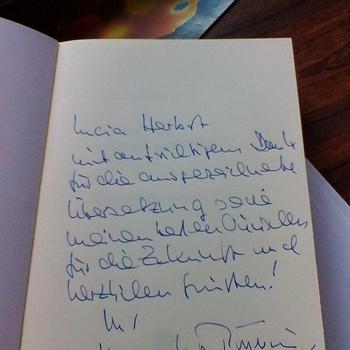 Lucia Herbst
mit aufrichtigem Dank
für die ausgezeichnete
Übersetzung sowie
meinen besten Wünschen
für die Zukunft und
herzlichen Grüßen!
Ihr